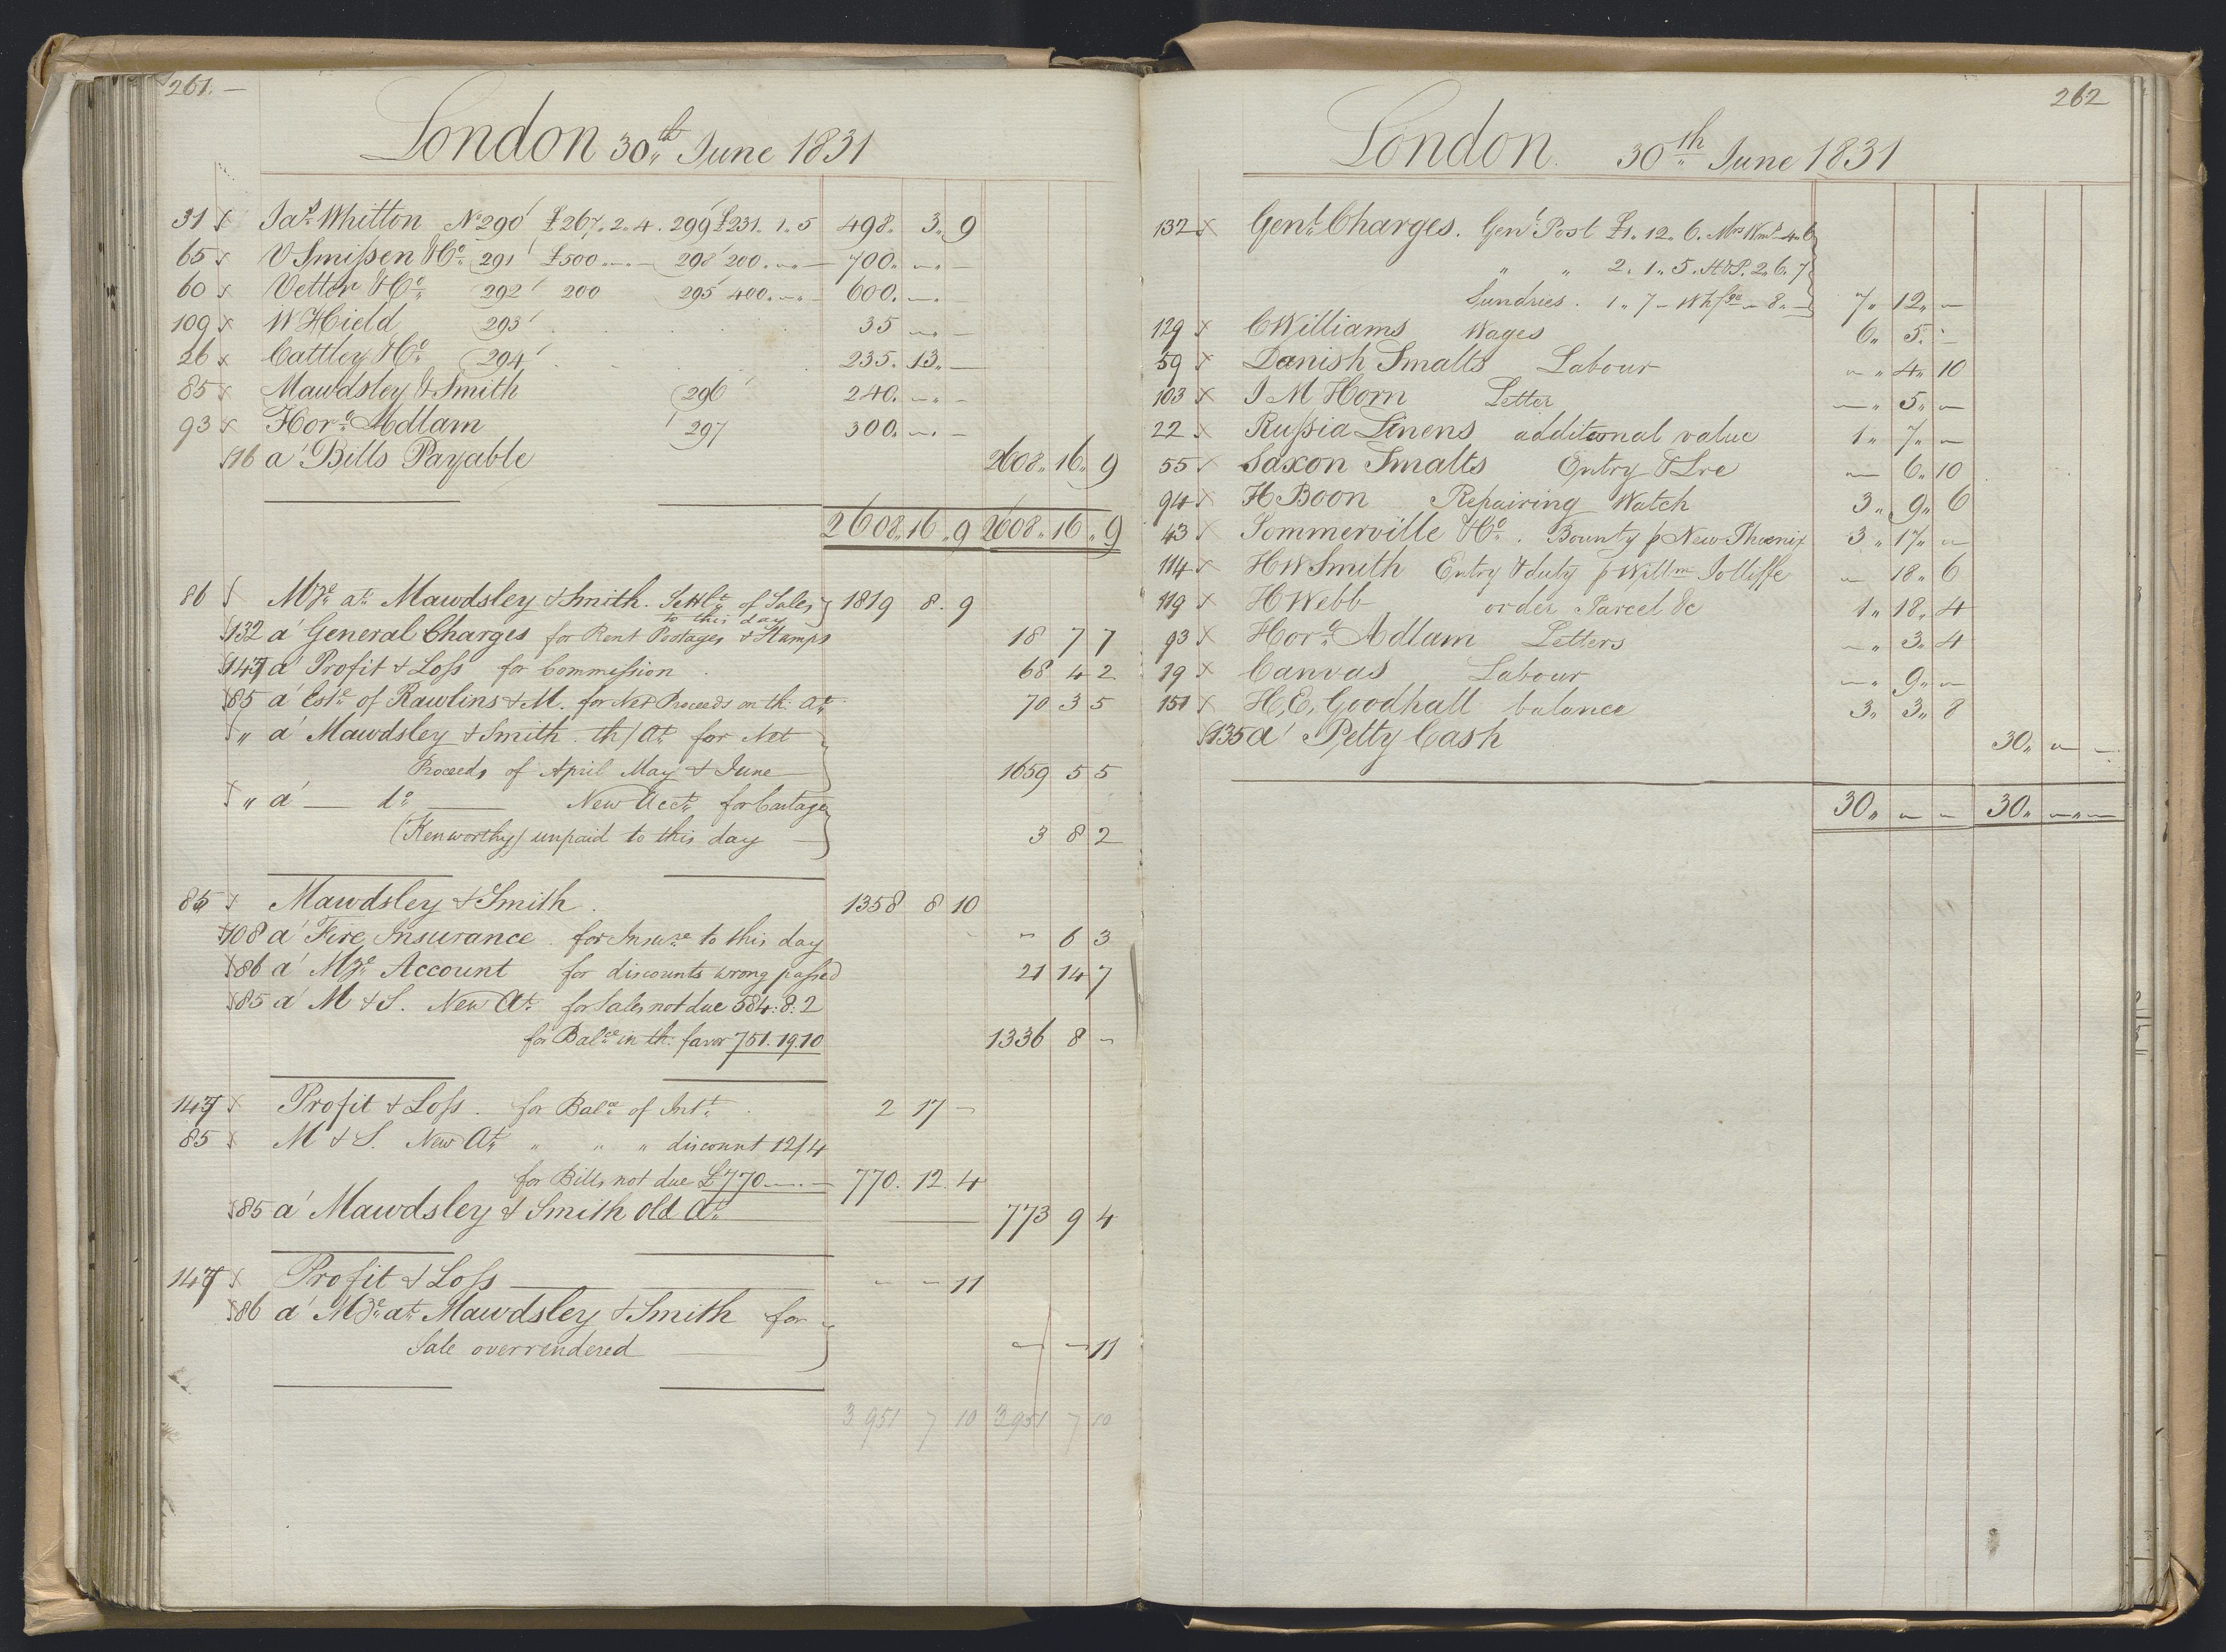 261. —
London 30th June 1831
31 Jas. Whitton No 290 £267. 2. 4. 299 £231. 1. 5 498. 3. 9
65 V Smissen & Co. 291 £500 — 298 200 — 700. — —
60 Vetter & Co. 292 200 295 400. — 600. — —
109 W Hield 293 35 — —
26 Cattley & Co. 294 235. 13. —
85 Mawdsley & Smith 296 240. — —
93 Hor. Adlam 297 300. — —
116 a Bills Payable 2608. 16. 9
2608. 16. 9 2608. 16. 9
86 Mze at. Mawdsley & Smith. Settlt. of Sales 1819 8. 9
to this day
132 a General Charges for Rent Postages & Stamps 18 7 7
147 a Profit & Loss for Commission 68 4 2
85 a Este. of Rawlins & M. for Net Proceeds on th. at. 70 3 5
" a Mawdsley & Smith. th/ at. for Net
Proceeds of April May & June — 1659 5 5
" a — do. — New Acct. for Cartage
(Kenworthy) unpaid to this day — 3 8 2
85 Mawdsley & Smith. 1358 8 10
108 a Fire Insurance. for Insurce to this day — 6 3
86 a Mze. Account for discounts wrong passed 21 14 7
85 a M & S. New at. for Sales not due 584: 8: 2
for Balce in th. favor 751. 19. 10 1336 8 —
147 Profit & Loss. for Balce of Intt. 2 17 —
85 M & S. New At. " " " discount 12/4
for Bills not due £770 — — 770. 12. 4
85 a Mawdsley & Smith old at. — 773 9 4
147 Profit & Loss — — — 11
86 a Mze at. Mawdsley & Smith for
Sale overrendered — — — 11
3951 7 10 3951 7 10
262
London. 30th June 1831
132 Genl. Charges. Genl Post £1. 12. 6.
" " 2. 1. 5. 2. 6. 7
Sundries. 1. 7 — 8. — 7. 12. —
129 C Williams Wages 6. 5. —
59 Danish Smalts Labour — 4. 10
103 J M Horn Letter — 5. —
22 Russia Linens additional value 1. 7. —
55 Saxon Smalts Entry & Lre — 6. 10
94 H Boon Repairing Watch 3. 9. 6
43 Sommerville & Co. Bounty p New Phœnix 3. 17. —
114 H W Smith Entry & duty p Willm Jolliffe — 18. 6
119 H Webb order Parcel &c 1. 18. 4
93 Hor. Adlam Letters — 3. 4
19 Canvas Labour — 9. —
151 H. E. Goodhall balance 3. 3. 8
135 a Petty Cash 30. — —
30. — — 30. — —